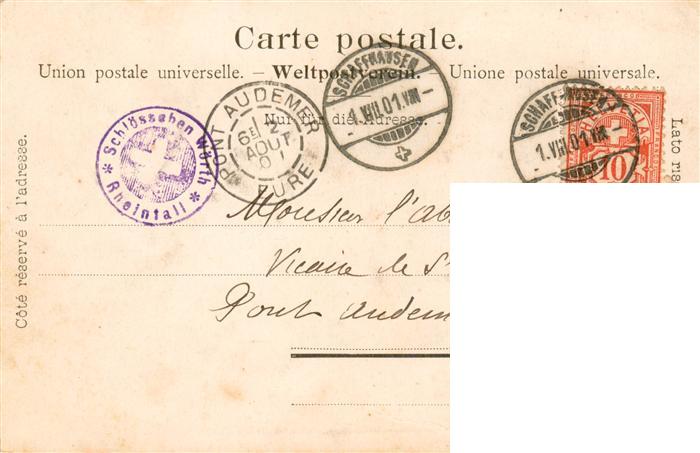 Carte postale.
Union postale universelle. — Weltpostverein. Unione postale universale.
Nur für die Adresse.
Côté réservé à l'adresse.
Lato ris
Schlösschen Wörth
* Rheinfall *
PONT AUDEMER
AOUT
01
EURE
SCHAFFHAUSEN
1.VIII.01.VIII
SCHAFFHAUSEN
1.VIII.01.VIII
10
Monsieur l'Ab
Vicaire de S
Pont Audem